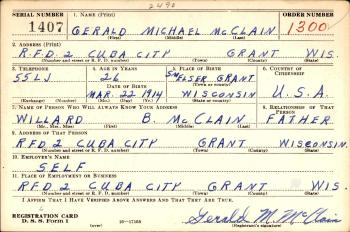 2490
SERIAL NUMBER 1. NAME (Print) ORDER NUMBER
1407 GERALD MICHAEL McCLAIN 1300
(First) (Middle) (Last)
2. ADDRESS (Print)
R.F.D. 2 CUBA CITY GRANT WIS.
(Number and street or R. F. D. number) (Town) (County) (State)
3. TELEPHONE 4. AGE IN YEARS 5. PLACE OF BIRTH 6. COUNTRY OF CITIZENSHIP
55LJ 26 SMELSER GRANT
DATE OF BIRTH (Town) (County)
MAR. 22 1914 WISCONSIN U.S.A.
(Exchange) (Number) (Mo.) (Day) (Yr.) (State or country)
7. NAME OF PERSON WHO WILL ALWAYS KNOW YOUR ADDRESS 8. RELATIONSHIP OF THAT PERSON
WILLARD B. McCLAIN FATHER
(Mr., Mrs., Miss) (First) (Middle) (Last)
9. ADDRESS OF THAT PERSON
R.F.D. 2 CUBA CITY GRANT WISCONSIN.
(Number and street or R. F. D. number) (Town) (County) (State)
10. EMPLOYER'S NAME
SELF
11. PLACE OF EMPLOYMENT OR BUSINESS
R.F.D. 2 CUBA CITY GRANT WIS.
(Number and street or R. F. D. number) (Town) (County) (State)
I AFFIRM THAT I HAVE VERIFIED ABOVE ANSWERS AND THAT THEY ARE TRUE.
REGISTRATION CARD
D. S. S. Form 1 (over) Gerald M. McClain
(Registrant's signature)